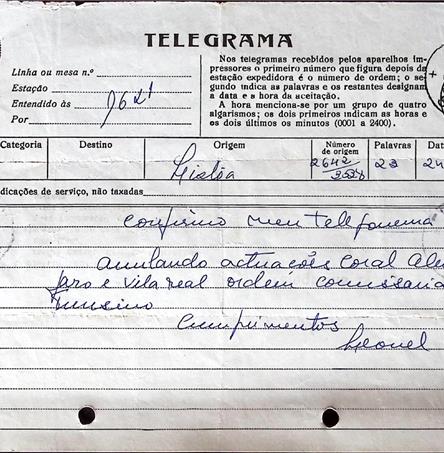 TELEGRAMA
Linha ou mesa n.º
Estação
Entendido às
Por
Nos telegramas recebidos pelos aparelhos im-
pressores o primeiro número que figura depois da
estação expedidora é o número de ordem; o se-
gundo indica as palavras e os restantes designam
a data e a hora da aceitação.
A hora menciona-se por um grupo de quatro
algarismos; os dois primeiros indicam as horas e
os dois últimos os minutos (0001 a 2400).
Categoria Destino Origem Número de origem Palavras Dat
Lisboa 2642 23 24
dicações de serviço, não taxadas
confirmo meu telefonema
anulando actuações coral Ale
faro e vila real ordem comissaria
turismo
cumprimentos
Leonel